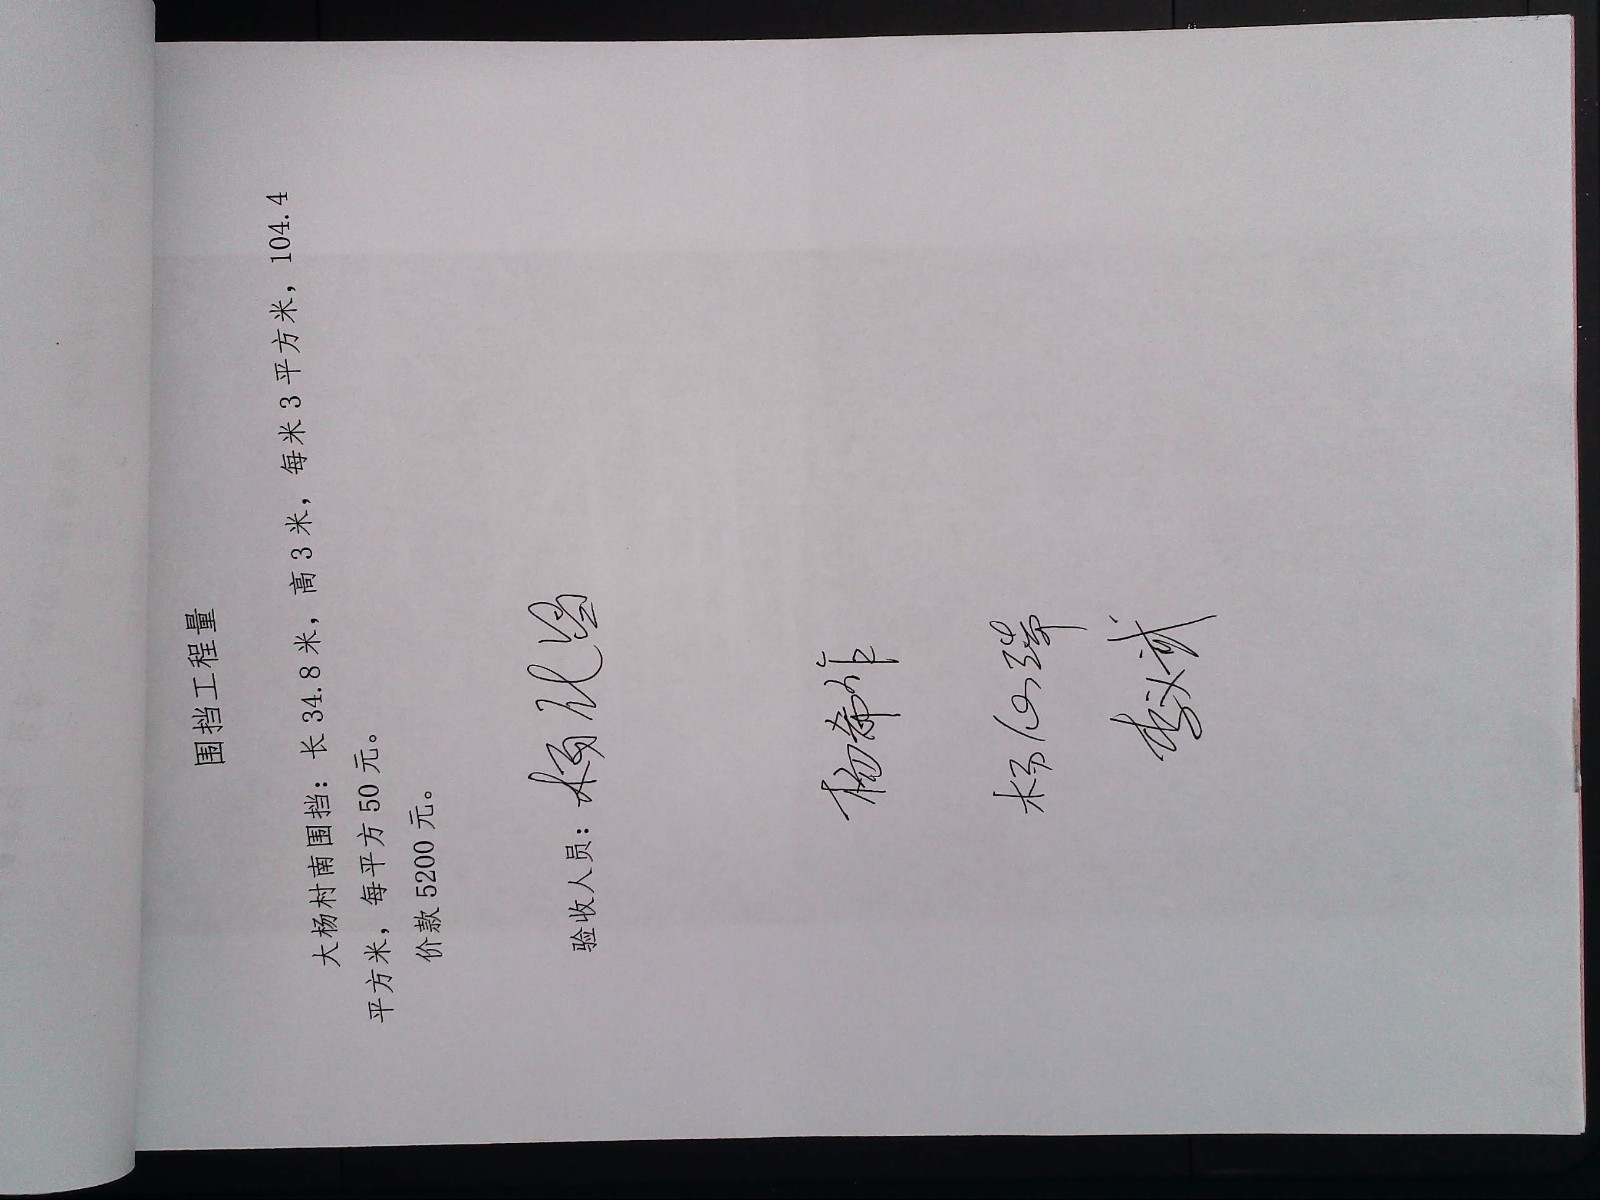 围挡工程量
大杨村南围挡：长 34.8 米，高 3 米，每米 3 平方米，104.4
平方米，每平方 50 元。
价款 5200 元。
验收人员：杨
杨
杨
李